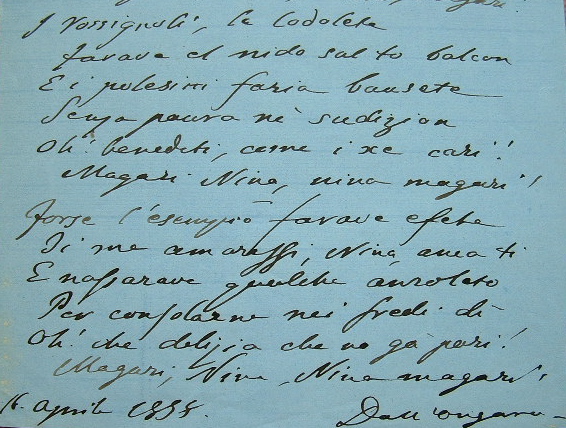 magari!
I rossignoli, le lodolete
Farave el nido sul to balcon
E i polesini faria bausete
Senza paura nè sudizion
Oh! benedeti, come i xe cari!
Magari Nina, nina magari!
Forse l'esempio farave efeto
Ti me amaressi, Nina, anca ti
E nassarave qualche anzoleto
Per consolarne nei fredi dì
Oh! che delizia che no ga pari!
Magari, Nina, Nina magari!
aprile 1858.
Dall'Ongaro